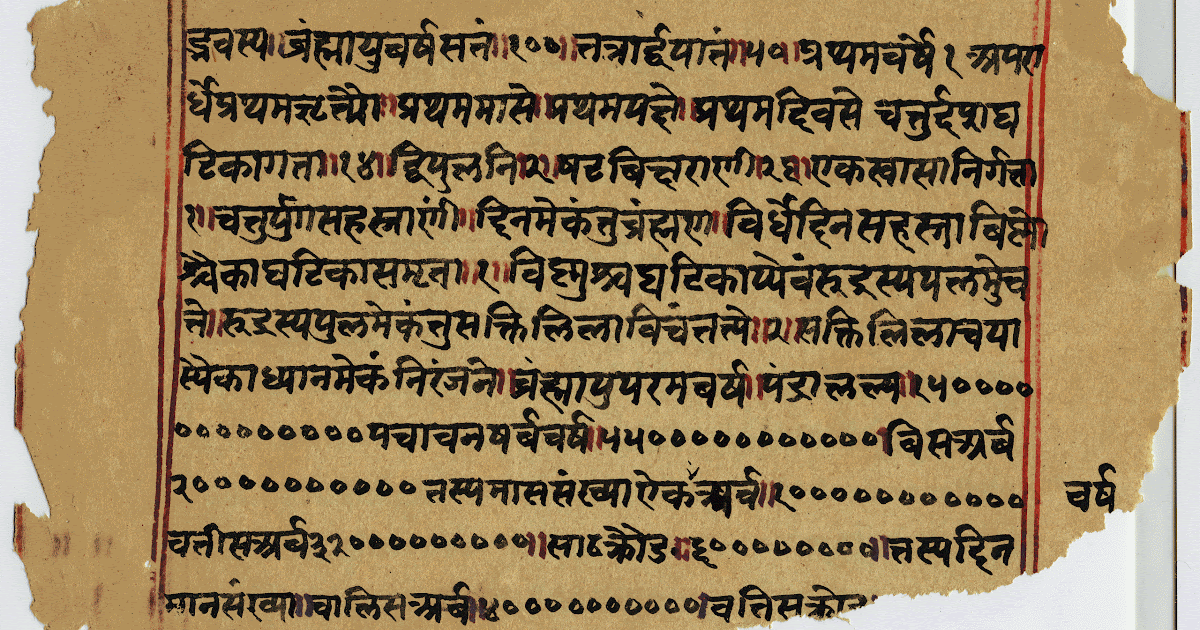 द्रवस्य॥ ब्रंह्मायुर्बर्षसतं॥१००॥ तत्रार्द्धपातं॥५०॥ प्रथ्यमवर्षे १ अपरा
र्धेप्रथमऋत्त्यै॥ प्रथममासे॥ प्रथमपक्षे॥ प्रथमदिवसे चतुर्दशघ
टिकागता॥१४॥ द्विपलनि॥२॥ षट बिच्छराणी॥२६॥ एकस्वासानिर्गता
१॥ चतुर्युगसहस्त्राणी॥ दिनमेकंतुब्रंह्मण॥ विर्धेदिनसहस्त्राबिष्णो
श्चैकाघटिकासमृता॥१॥ विष्णुश्चघटिकाप्येवंरूद्रस्यपलमुच
ते॥ रूद्रस्यपुलमेकंतुसक्तिलिलाविचंतत्पे॥२॥ सक्तिलिलाचया
स्यैकाध्यानमेकंनिरंजने॥ ब्रंह्मायुपरमबर्ष॥ पंडालल्य॥१५००००
००००००००००पचाचनषर्बवर्ष॥५५०००००००००००००॥ बिसअर्ब
२०००००००००००० तस्यमाससंख्याऐकअर्व॥१०००००००००००० वर्ष
वतीसअर्ब३२००००००००००॥ साठक्रौड॥६०००००००००॥ तस्यदिन
मानसंख्या॥ चालिसअर्ब॥४०००००००००००। वतिसक्रो